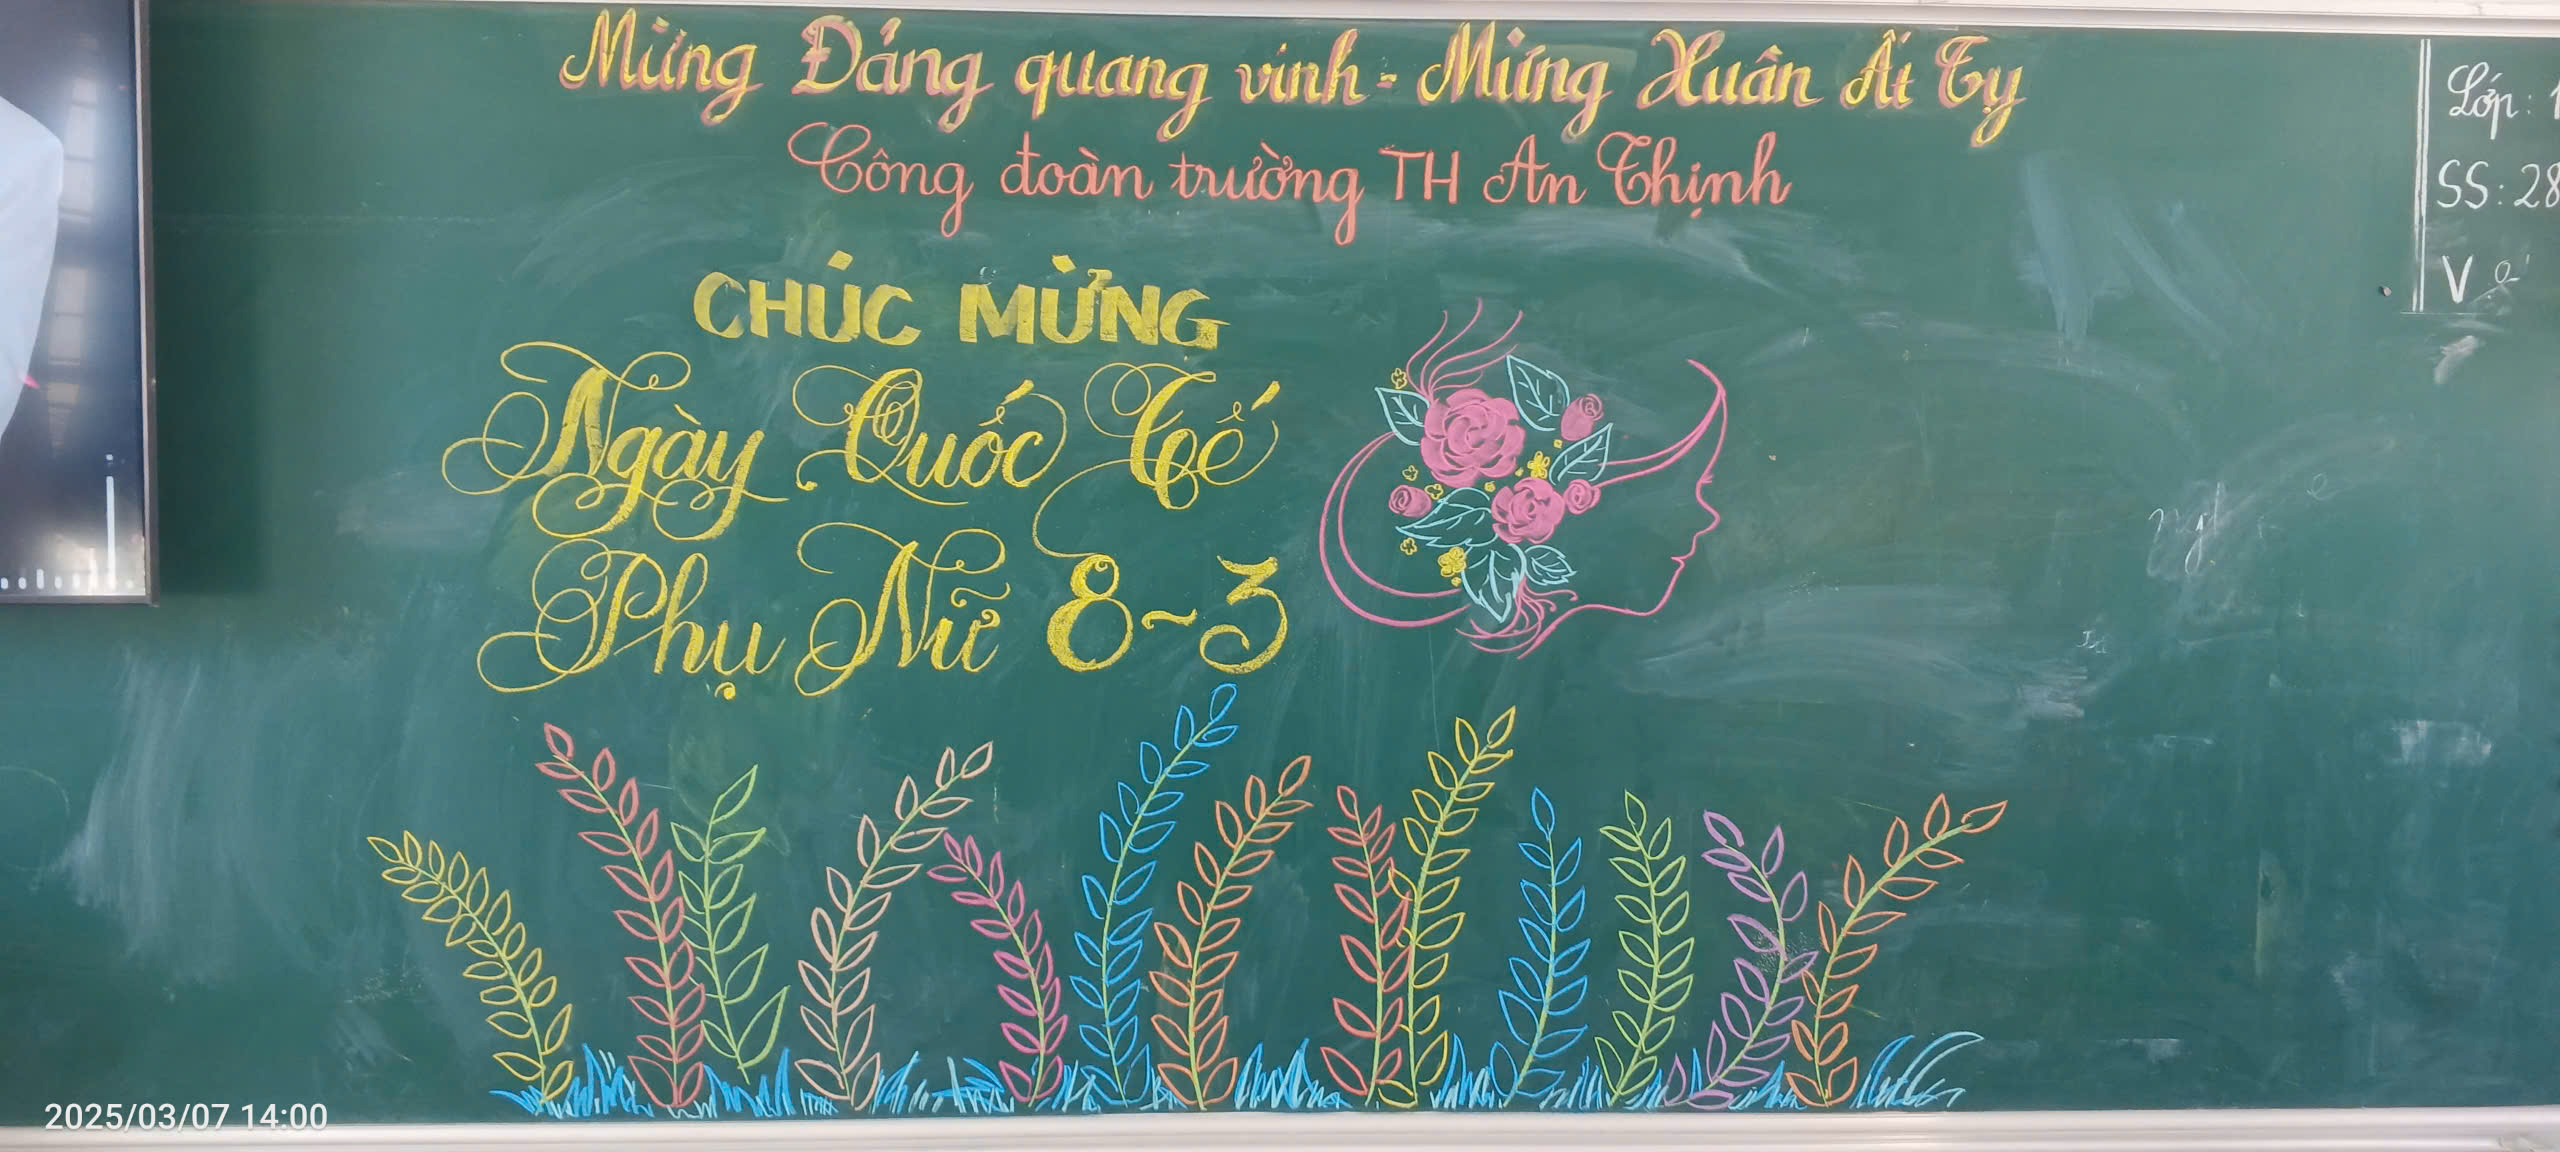 Mừng Đảng quang vinh - Mừng Xuân Ất Tỵ
Công đoàn trường TH An Thịnh
CHÚC MỪNG
Ngày Quốc Tế
Phụ Nữ 8~3
Lớp: 1
SS: 28
V
2025/03/07 14:00